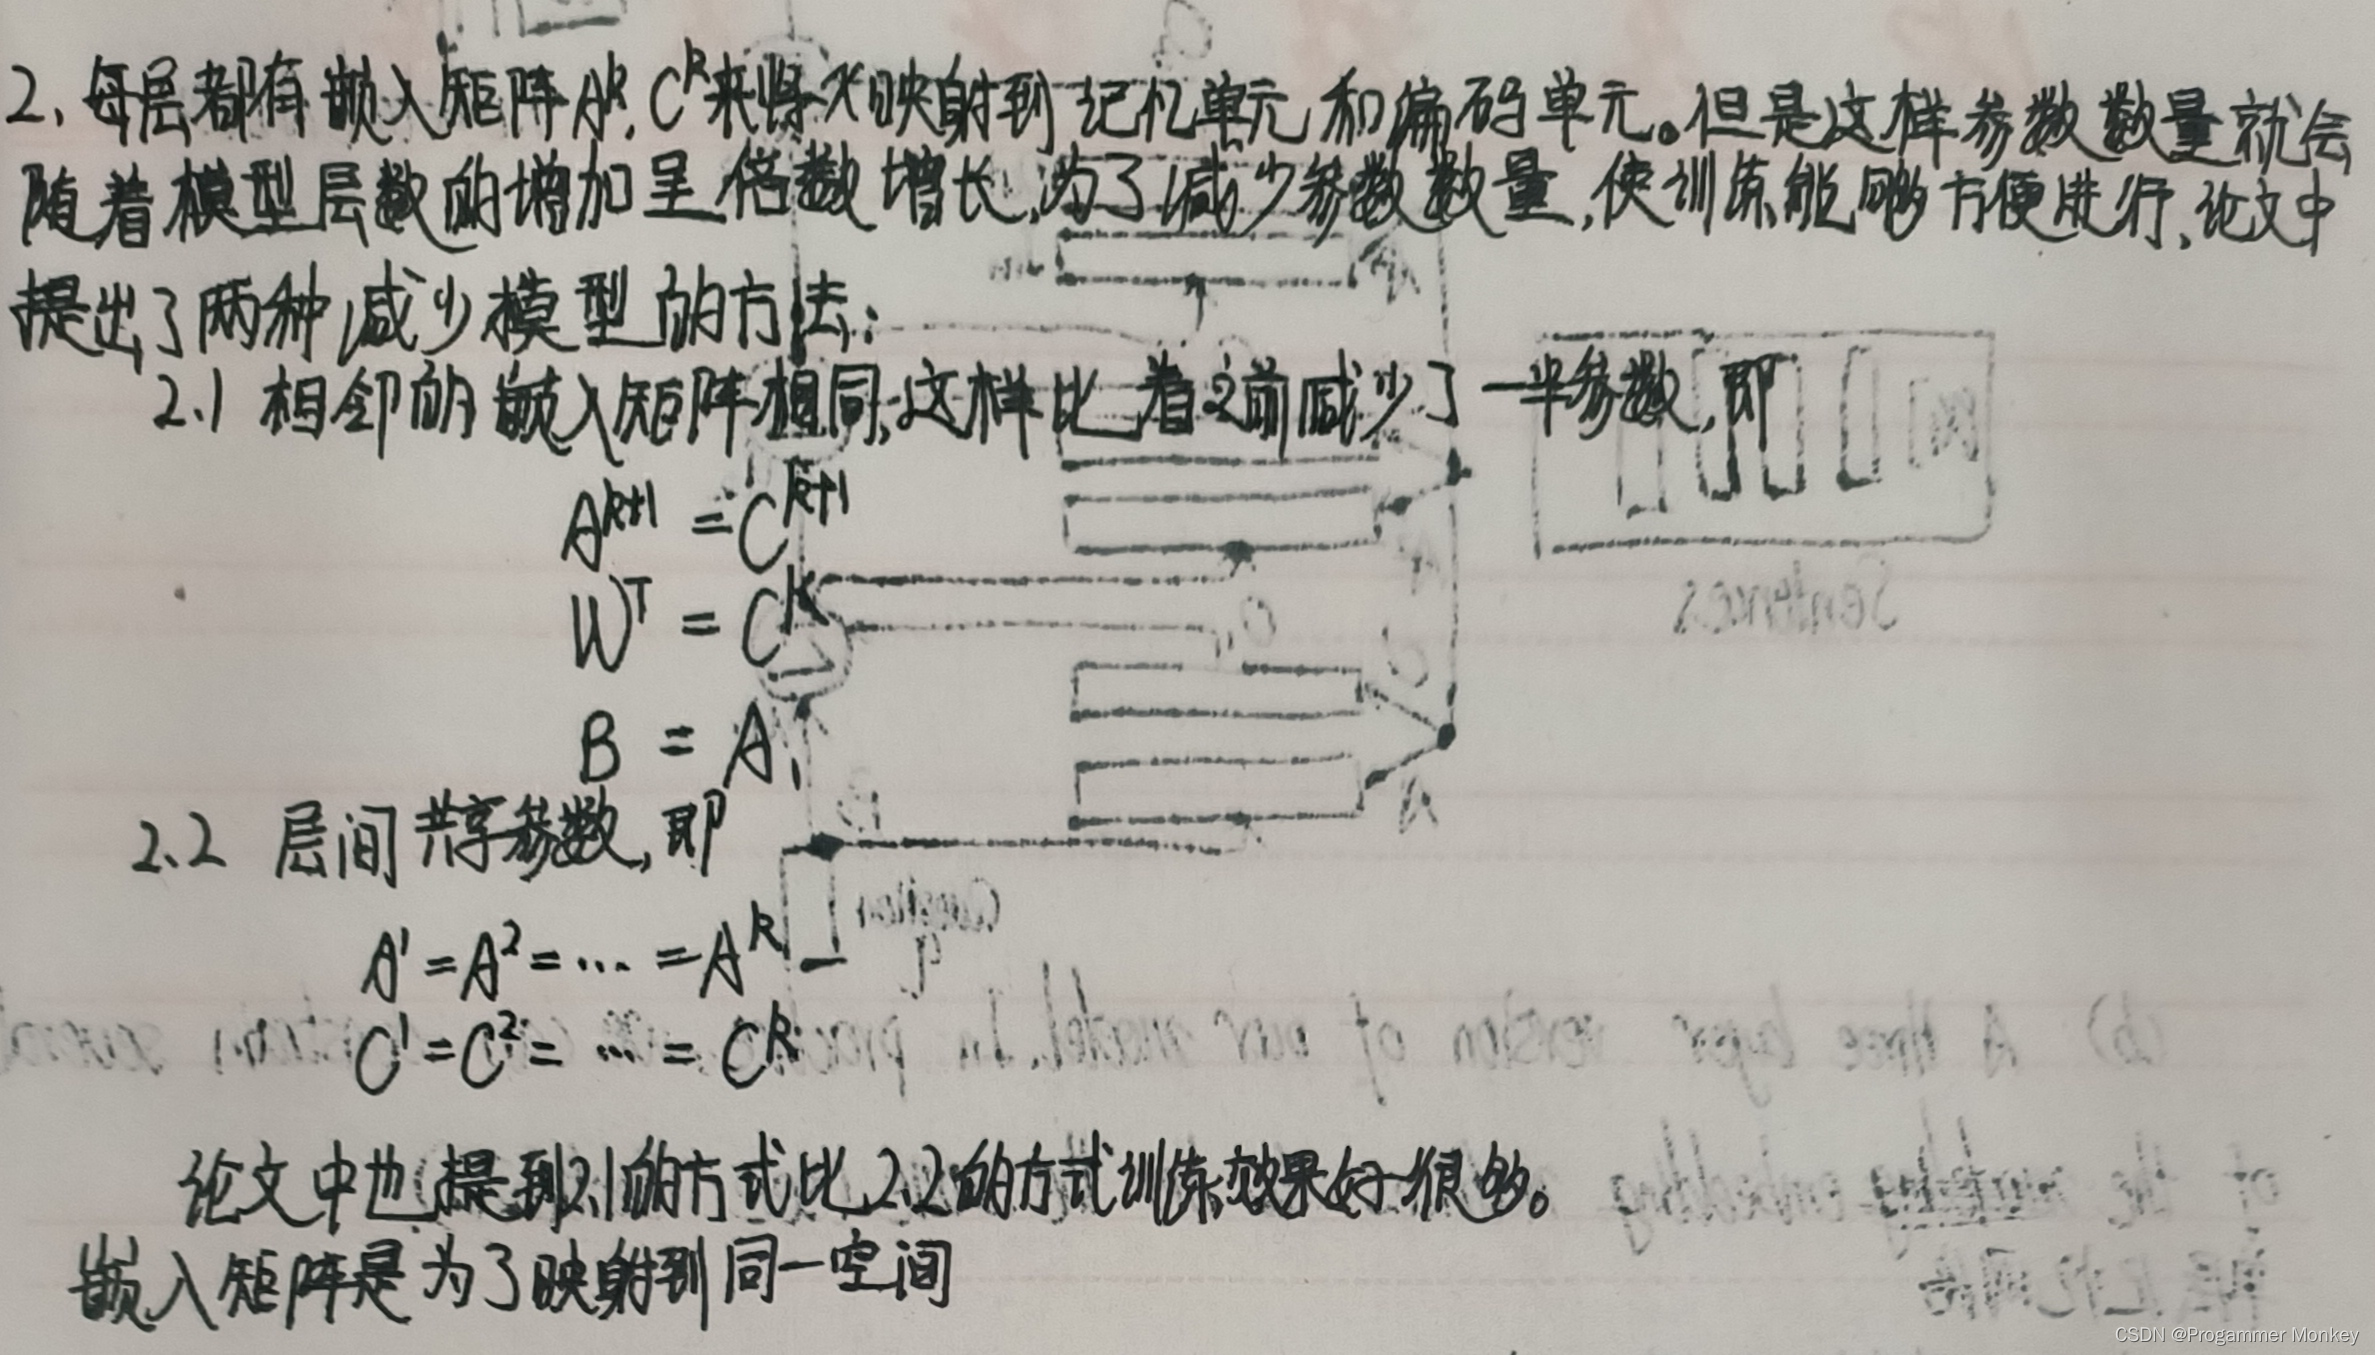 2、每层都有嵌入矩阵A^k、C^k来将x映射到记忆单元和偏码单元。但是这样参数数量就会
随着模型层数的增加呈倍数增长,为了减少参数数量,使训练能够方便进行,论文中
提出了两种减少模型的方法:
2.1 相邻的嵌入矩阵相同,这样比着之前减少了一半参数,即
A^{k+1} = C^{k+1}
W^T = C^K
B = A_1
2.2 层间共享参数,即
A^1 = A^2 = ... = A^k
C^1 = C^2 = ... = C^k
论文中也提到2.1的方式比2.2的方式训练效果好很多。
嵌入矩阵是为了映射到同一空间
Sentences
Question
q
(b) A three layer version of our model. In
of the embedding
CSDN @Progammer Monkey